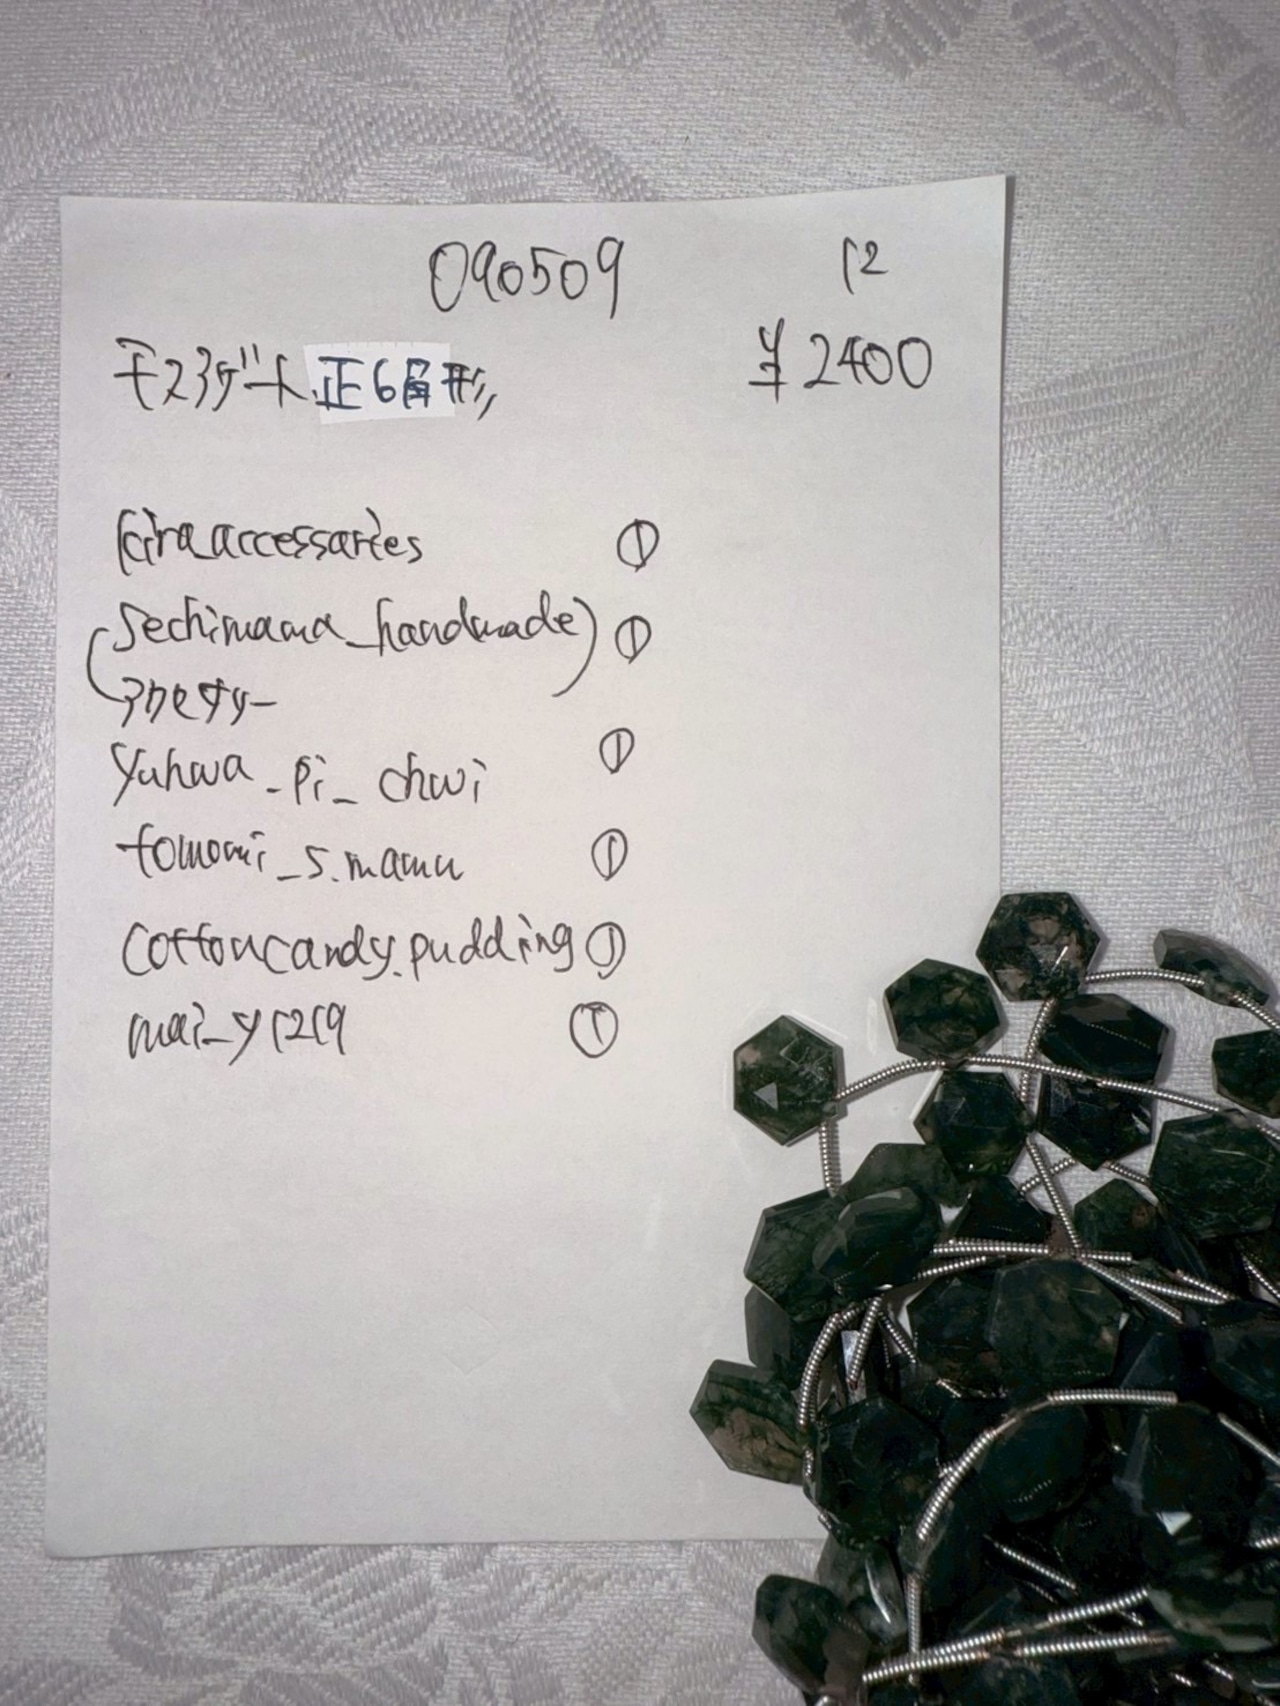 090509 12
モスアゲート 正6角形 ¥2400
kira_accessaries ①
(sechimama_handmade) ①
yuhwa_pi_chwi ①
tomomi_s.mamu ①
cottoncandy.pudding ①
mai_y1219 ①